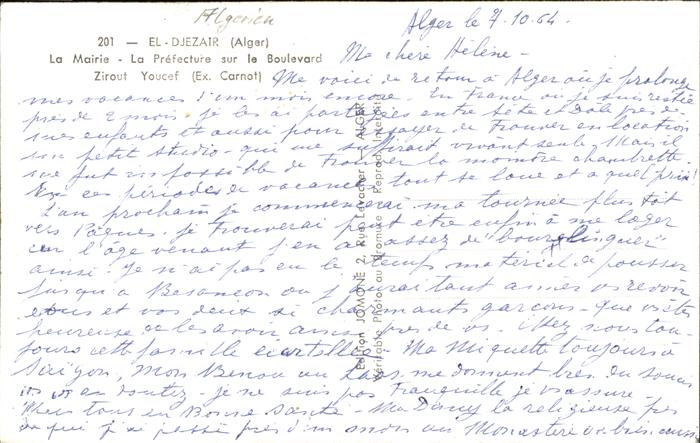 Algerien
Alger le 7.10.64.
201 — EL-DJEZAIR (Alger)
La Mairie - La Préfecture sur le Boulevard
Zirout Youcef (Ex. Carnot)
Ma chère Hélène -
Me voici de retour à Alger où je prolonge
mes vacances d'un mois encore. En France où je suis restée
près de 2 mois, je les ai partagés entre Sète et Dole près de
mes enfants et aussi pour essayer de trouver en location
un petit studio - qui me suffirait vivant seule. Mais il
me fut impossible de trouver la moindre chambrette
en ces périodes de vacances tout se loue et à quel prix!
L'an prochain je commencerai ma tournée plus tôt
vers Pâques. Je trouverai peut être enfin à me loger
car l'âge venant j'en ai assez de "bourlinguer"
ainsi. Je n'ai pas eu le temps matériel de pousser
jusqu'à Besançon où j'aurais tant aimé vs revoir
et vos deux si charmants garçons - que vs êtes
heureuse de les avoir ainsi près de vs. Chez nous tou-
jours cette famille écartelée. Ma Miquette toujours à
Saïgon, mon Benou au Laos me donnent très du souci
vs vs en doutez - je ne suis pas tranquille je vs assure -
tous en Bonne Santé - Ma Dany la religieuse près
de qui j'ai passé près d'un mois au Monastère
Edition JOMONE 2, Rue Levacher - ALGER
Véritable Photo au Bromure - Reprod. Interdite